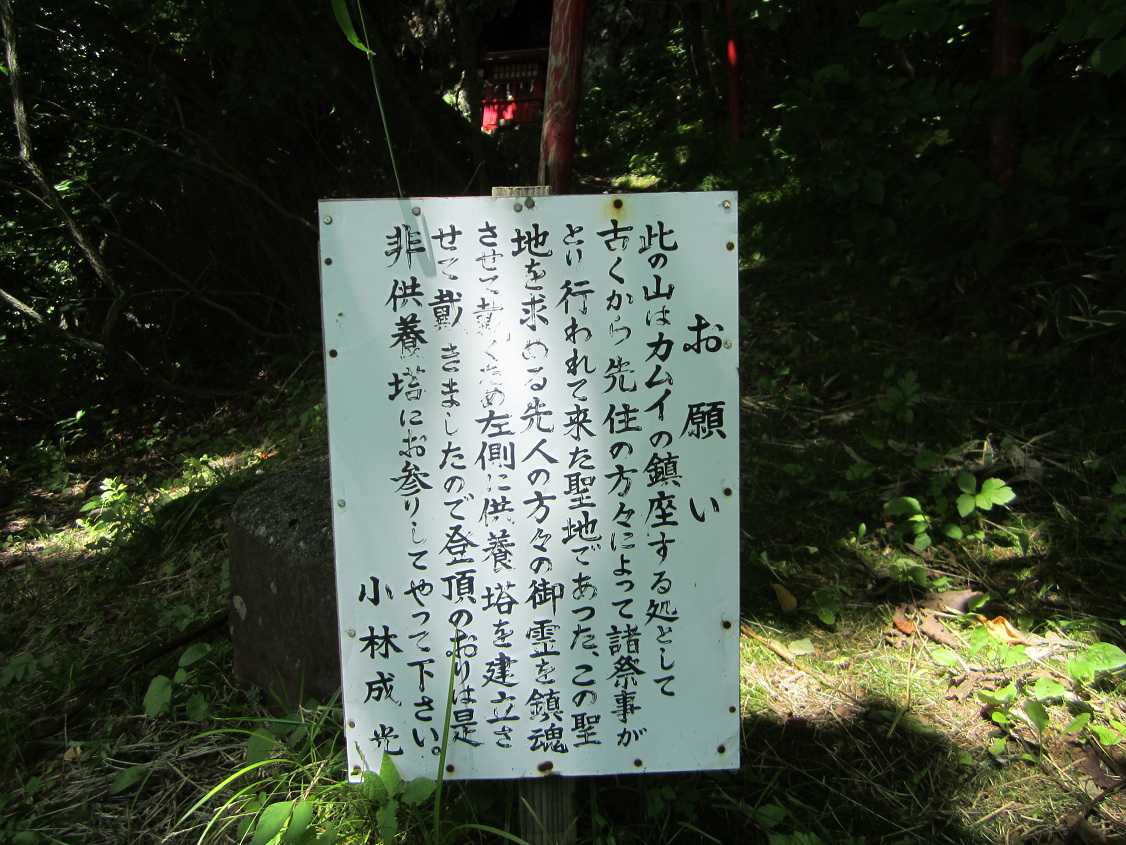 お願い
此の山はカムイの鎮座する処として
古くから先住の方々によって諸祭事が
とり行われて来た聖地であった、この聖
地を求める先人の方々の御霊を鎮魂
させて戴くため左側に供養塔を建立さ
せて戴きましたので登頂のおりは是
非供養塔にお参りしてやって下さい。
小林成光